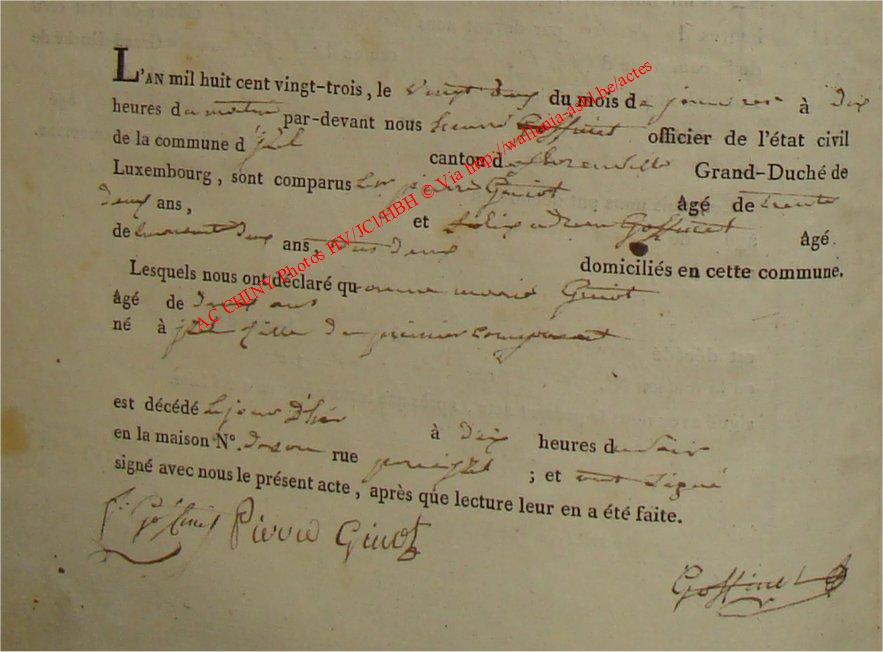 L'AN mil huit cent vingt-trois, le vingt deux du mois de janvier à dix
heures du matin par-devant nous henri Goffinet officier de l'état civil
de la commune d'jzel canton de florenville Grand-Duché de
Luxembourg, sont comparus pierre Guiot âgé de trente
deux ans, et adrien Goffinet âgé
de deux ans, tous deux domiciliés en cette commune.
Lesquels nous ont déclaré qu anne marie Guiot
âgé de deux ans
né à jzel fille du premier comparant
est décédé le jour d'hier à dix heures du soir
en la maison N°. rue ; et ont signé
signé avec nous le présent acte, après que lecture leur en a été faite.
Goffinet Pierre Guiot
Goffinet
AC CHINY Photos HV/JCl/HBH © Via http://wallonia-asbl.be/actes